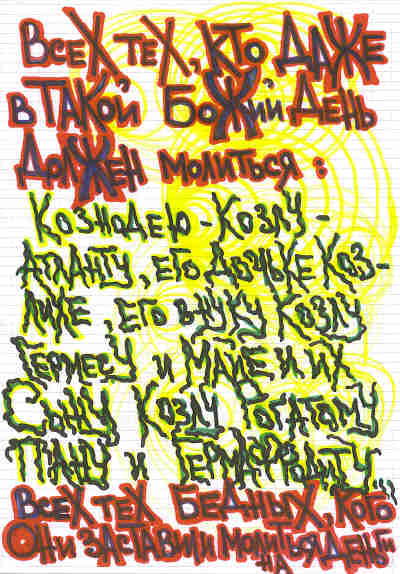 Всех тех, кто даже
в такой Божий день
должен молиться:
Кознодею-козлу-
Атланту, его дочьке коз-
лихе, его внуку козлу
Гермесу и Майе и их
сыну козлу рогатому
Пану и Гермафродиту...
Всех тех бедных, кого
они заставили молиться на деньги